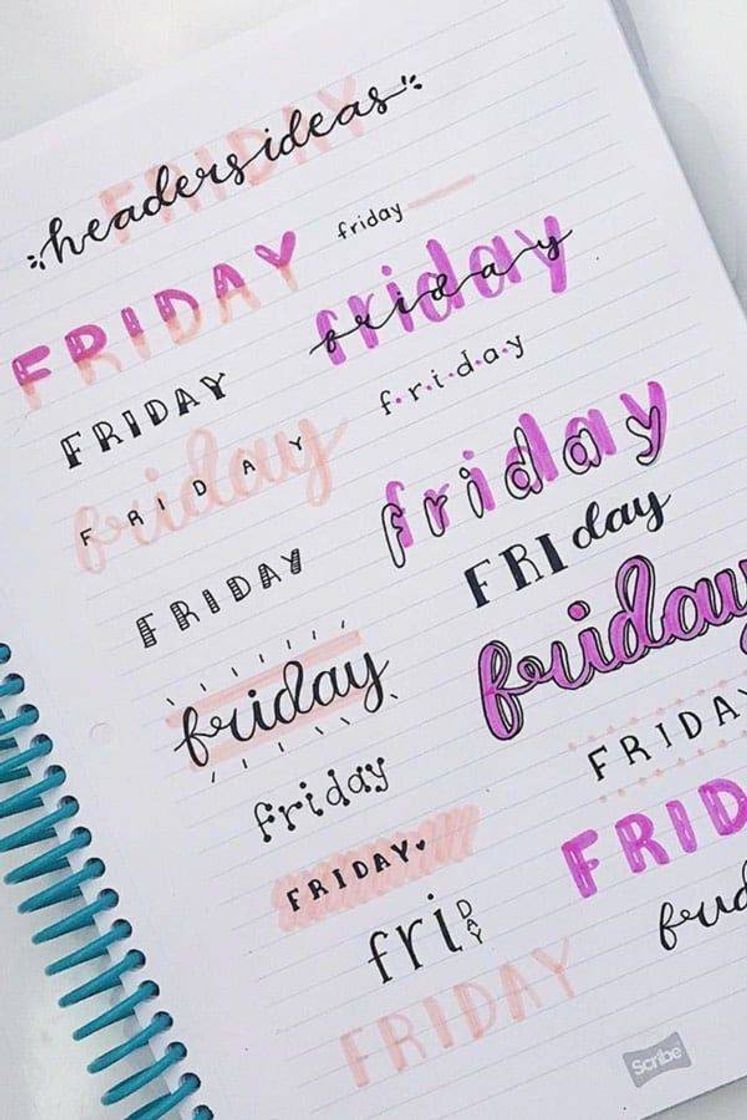 FRIDAY
headers ideas
friday
FRIDAY
friday
friday
FRIDAY
f.r.i.d.a.y
friday
FRIDAY
friday
friday
FRIday
FRIDAY
friday
friday
FRIDAY
friday
FRIDAY
FRID
frid
friDAY
FRIDAY
Scribe